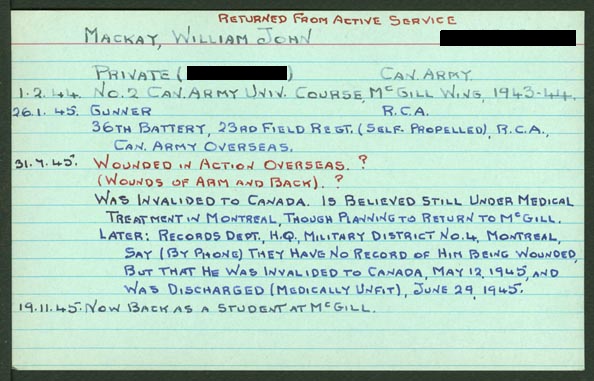 RETURNED FROM ACTIVE SERVICE
MACKAY, WILLIAM JOHN
PRIVATE ( ) CAN. ARMY
1.2.44. NO. 2 CAN. ARMY UNIV. COURSE, MCGILL WING, 1943-44.
26.1.45. GUNNER R.C.A.
36TH BATTERY, 23RD FIELD REGT. (SELF-PROPELLED), R.C.A.,
CAN. ARMY OVERSEAS.
31.7.45. WOUNDED IN ACTION OVERSEAS. ?
(WOUNDS OF ARM AND BACK). ?
WAS INVALIDED TO CANADA. IS BELIEVED STILL UNDER MEDICAL
TREATMENT IN MONTREAL, THOUGH PLANNING TO RETURN TO MCGILL.
LATER: RECORDS DEPT., H.Q., MILITARY DISTRICT NO. 4, MONTREAL,
SAY (BY PHONE) THEY HAVE NO RECORD OF HIM BEING WOUNDED,
BUT THAT HE WAS INVALIDED TO CANADA, MAY 12, 1945, AND
WAS DISCHARGED (MEDICALLY UNFIT), JUNE 29, 1945.
19.11.45. NOW BACK AS A STUDENT AT MCGILL.